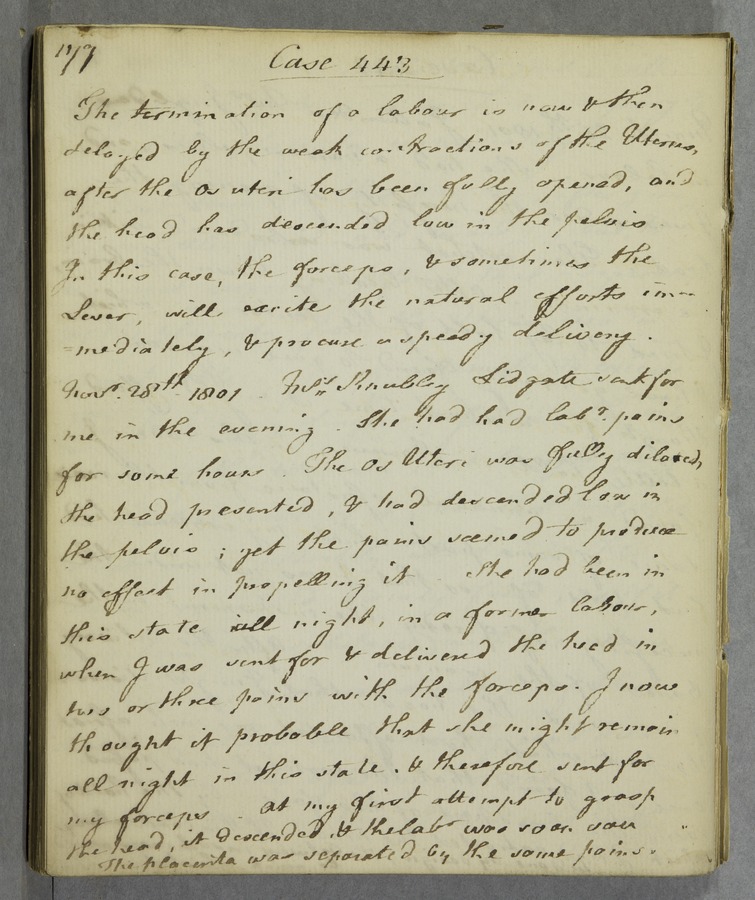 177
Case 443
The termination of a labour is now & then
delayed by the weak contractions of the Uterus,
after the os uteri has been fully opened, and
the head has descended low in the pelvis.
In this case, the forceps, & sometimes the
Lever, will excite the natural efforts im-
=mediately, & procure a speedy delivery.
Novr. 28th 1801. Mrs Knubley Lidgate sent for
me in the evening. She had had labr. pains
for some hours. The os Uteri was fully dilated,
the head presented, & had descended low in
the pelvis; yet the pains seemed to produce
no effect in propelling it. She had been in
this state all night, in a former labour,
when I was sent for & delivered the head in
two or three pains with the forceps. I now
thought it probable that she might remain
all night in this state. & therefore sent for
my forceps. at my first attempt to grasp
the head, it descended, & the labr was soon over
The placenta was separated by the same pains.